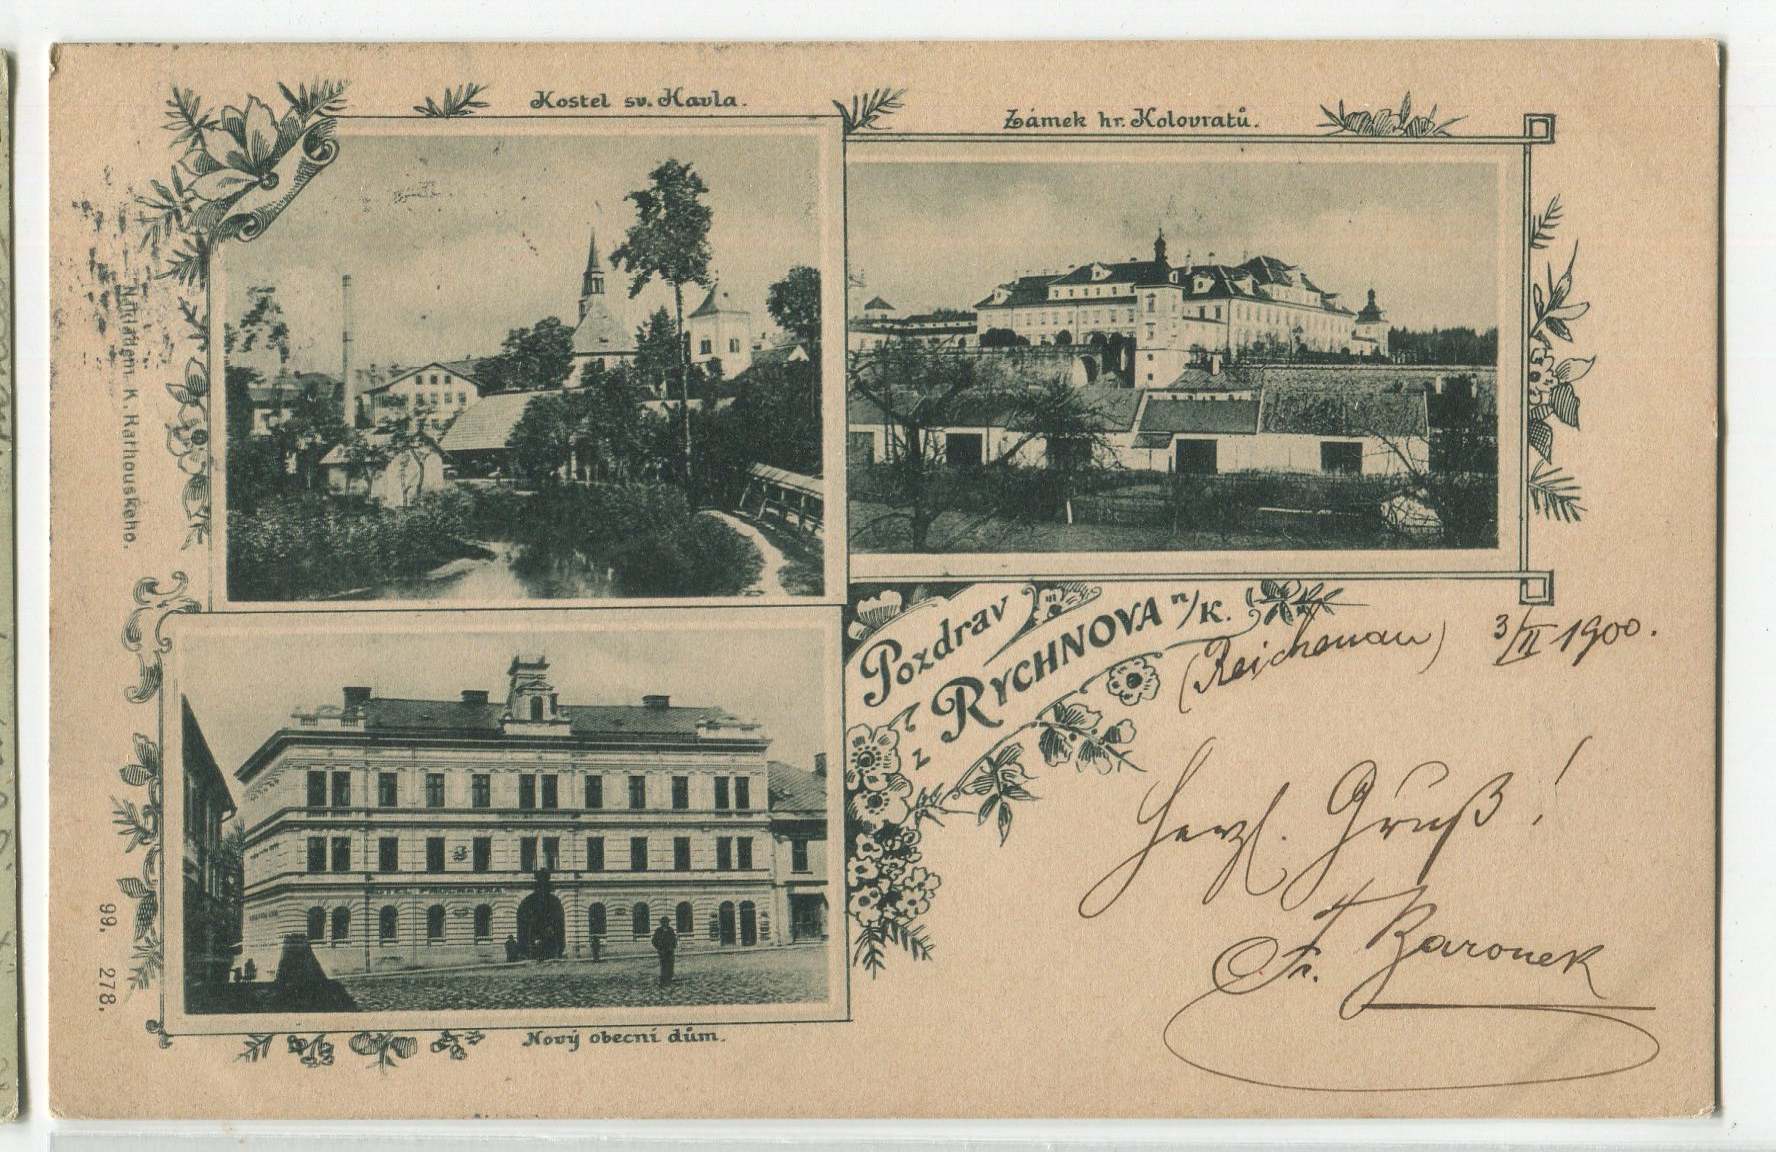 Kostel sv. Havla.
Zámek hr. Kolovratů.
Nákladem K. Rathouskeho.
Pozdrav
z RYCHNOVA n/K.
(Reichenau) 3/II 1900.
Herzl. Gruß!
Fr. Baronek
HOTEL PROCHAZKA
99. 278.
Nový obecní dům.